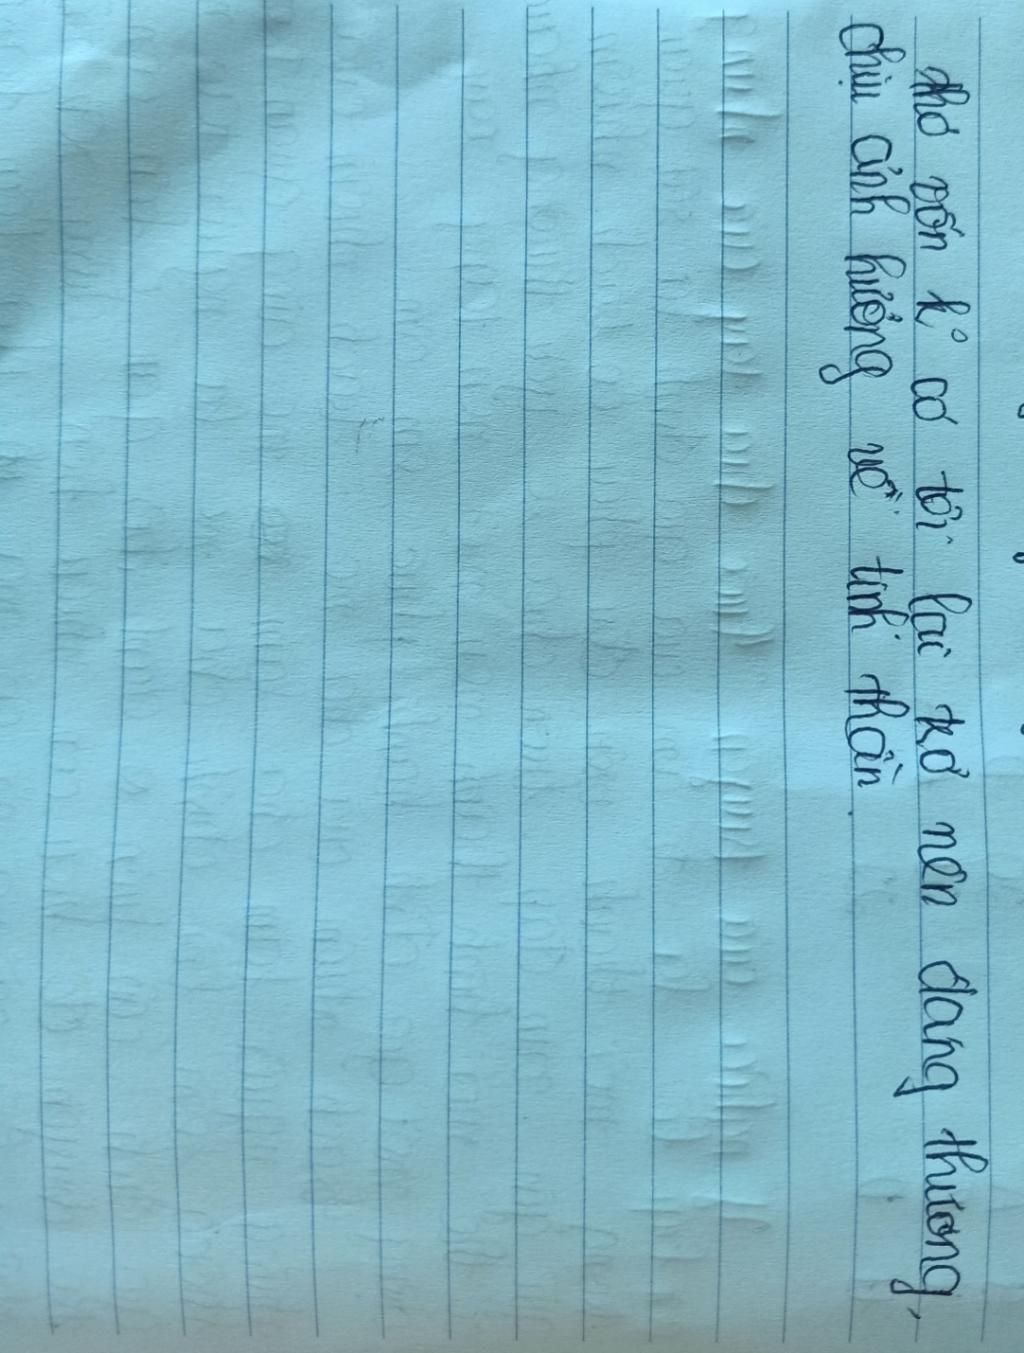 thơ vốn k° có tội lại trở nên đáng thương,
chịu ảnh hưởng về tinh thần.